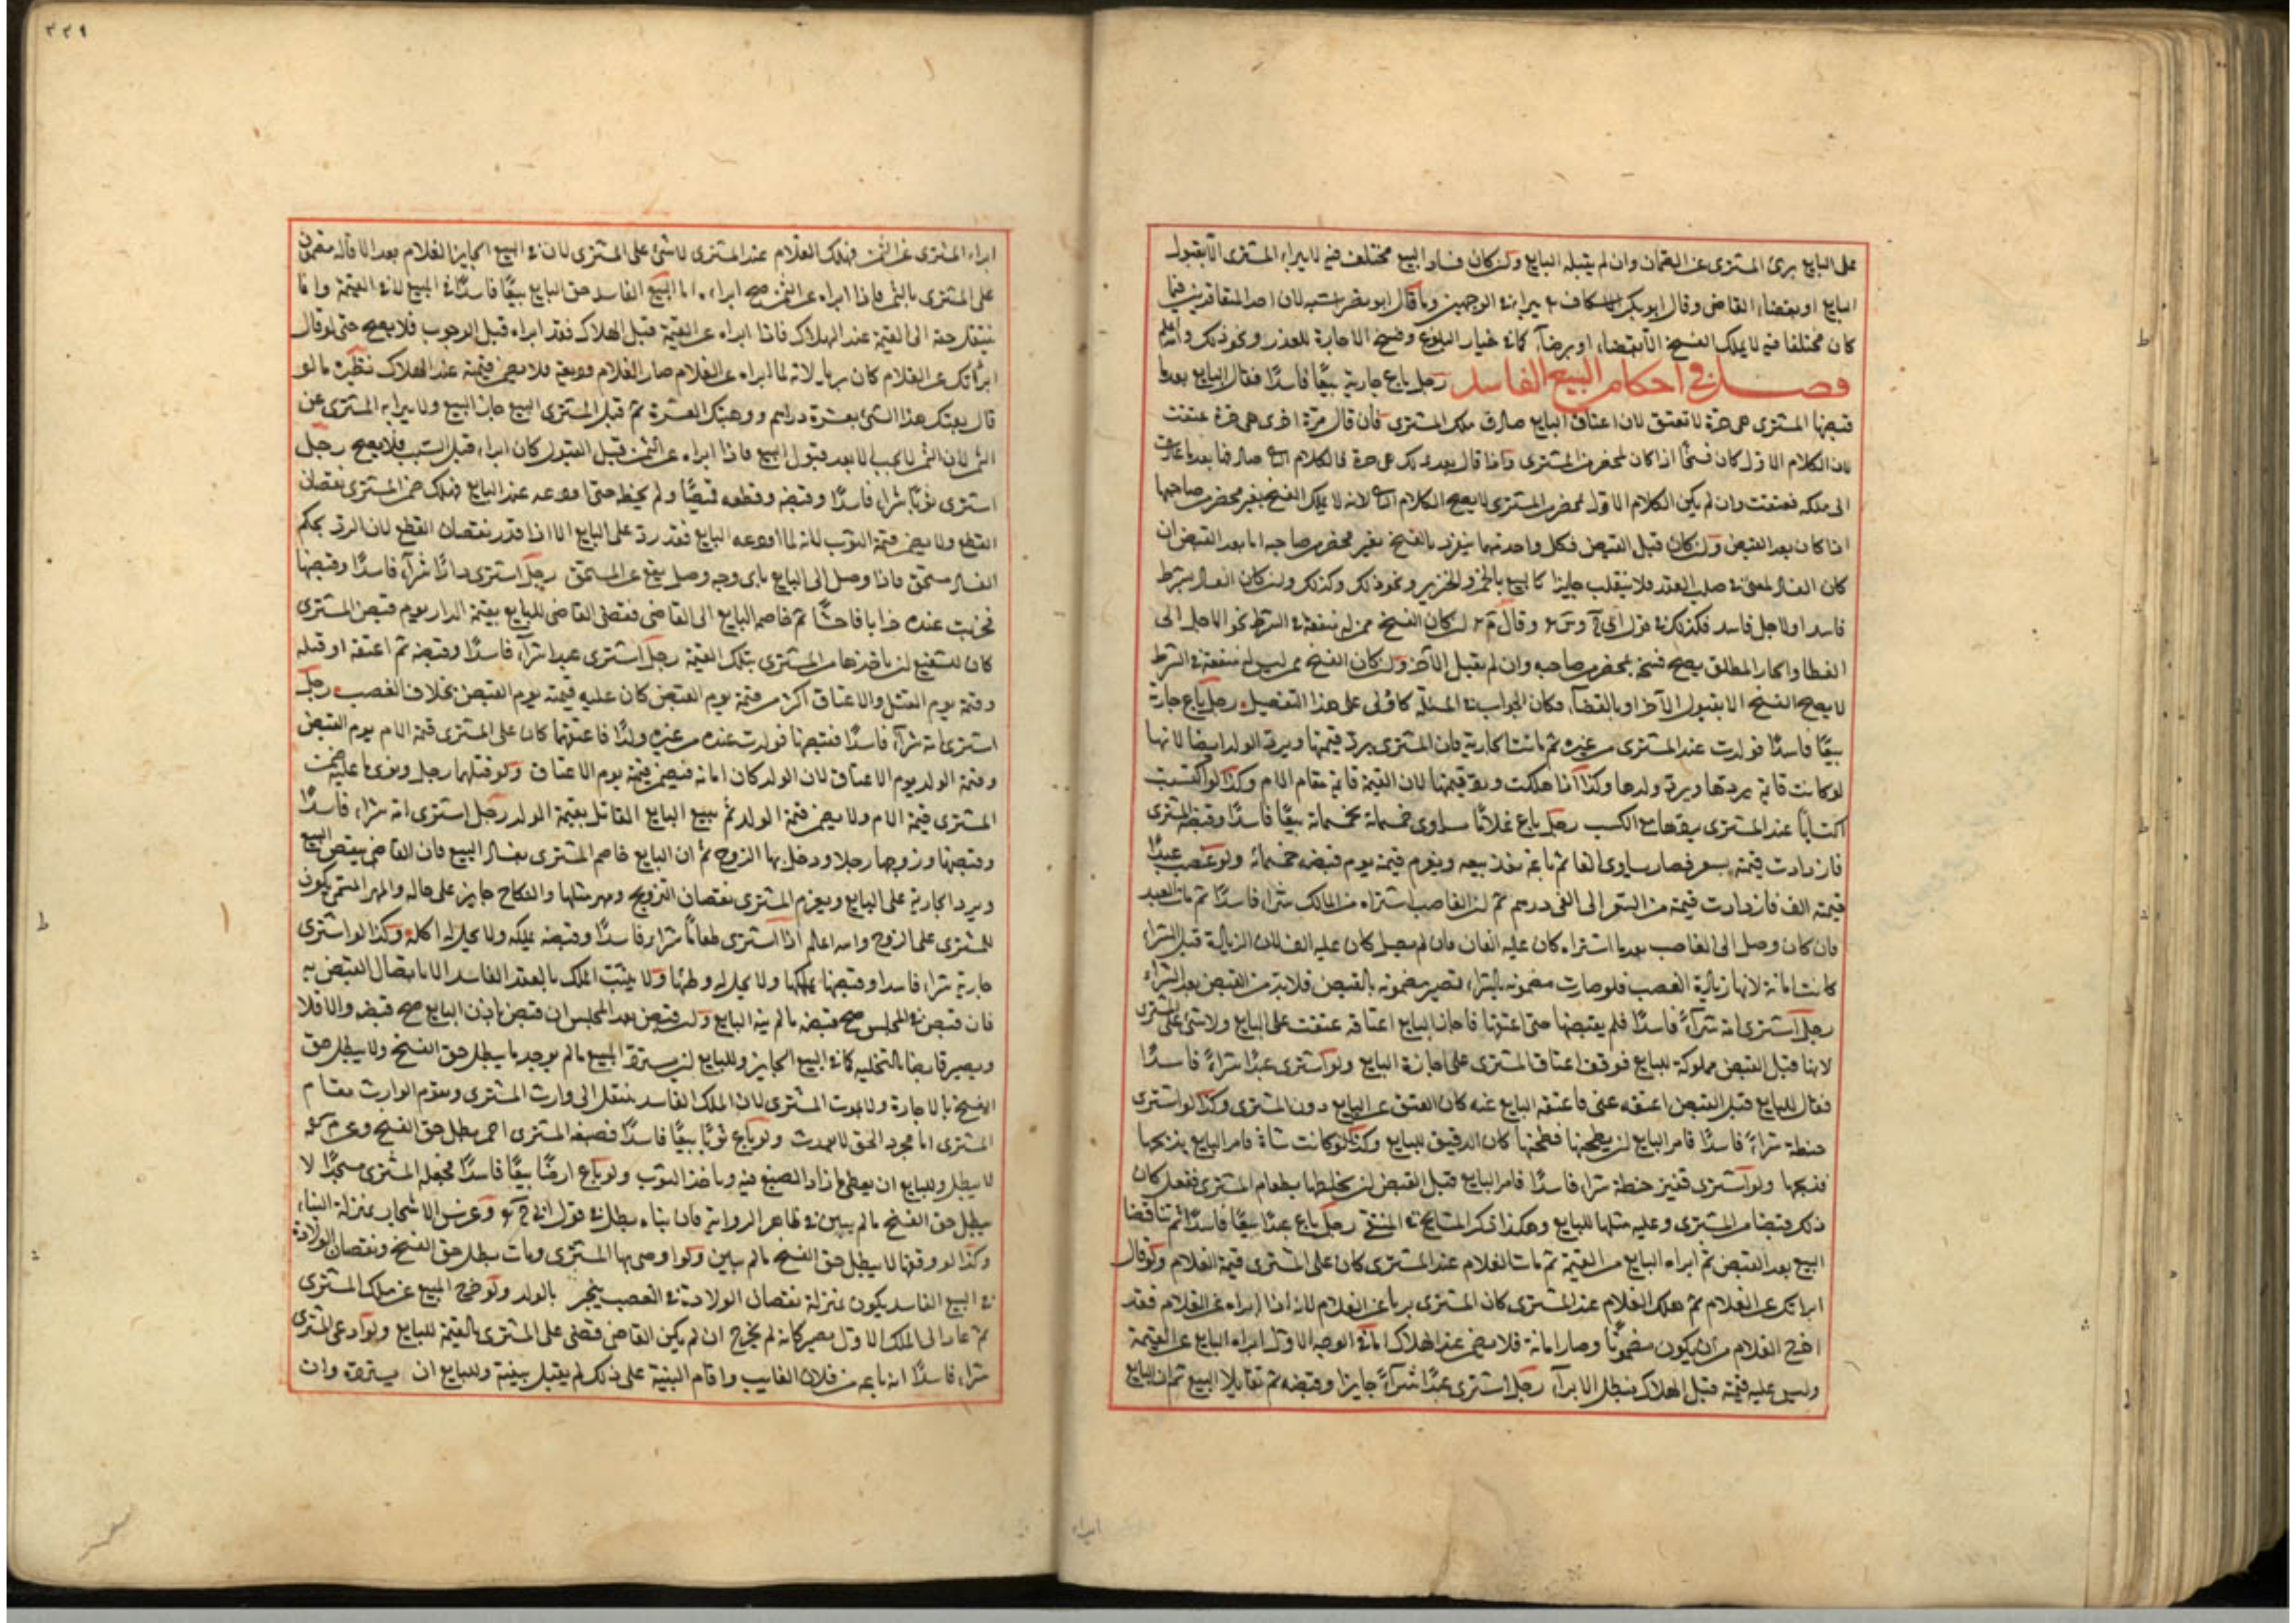 على البايع برئ المشترى عن الضمان وان لم يقبله البايع ولن كان فساد البيع مختلف فيه لا يبراء المشترى الا بقبول
البايع او بقضاء القاضى وقال ابو بكر الاسكاف يبرا فى الوجهين وما قال ابو نصر اشبه لان احد المتعاقدين فيما
كان مختلفا فيه لا يملك الفسخ الا بقضاء او برضاء كما فى خيار البلوغ وفسخ الاجارة للعذر ونحو ذلك والله اعلم
فصل فى احكام البيع الفاسد رجل باع جارية بيعًا فاسدًا فقال البايع بعدما
قبضها المشترى هى حرة لا تعتق لان اعتاق البايع صادف ملك المشترى فان قال مرة اخرى هى حرة عتقت
لان الكلام الاول كان فسخًا اذا كان بمحضر من المشترى واذا قال بعد ذلك هى حرة فالكلام الثانى صادفها بعد ما عادت
الى ملكه فعتقت وان لم يكن الكلام الاول بمحضر من المشترى لا يصح الكلام الثانى لانه لا يملك الفسخ بغير محضر من صاحبها
اذا كان بعد القبض ولن كان قبل القبض فكل واحد منهما ينفرد بالفسخ بغير محضر من صاحبه اما بعد القبض ان
كان الفساد لمعنى فى صلب العقد فلا ينقلب جايزا كالبيع بالخمر والخنزير ونحو ذلك وكذلك ولن كان الفساد بشرط
فاسد او لاجل فاسد فكذلك فى قول ابى وقال لن كان الفسخ ممن له منفعة فى الشرط نحو الاجل الى
العطا والخيار المطلق يصح فسخه بمحضر من صاحبه وان لم يقبل الآخر ولن كان الفسخ ممن ليس له منفعة فى الشرط
لا يصح الفسخ الا بقبول الآخر او بالقضاء فكان الجواب فى المسئلة كالاولى على هذا التفصيل رجل باع جارية
بيعًا فاسدًا فولدت عند المشترى من غيره ثم ماتت الجارية فان المشترى يرد قيمتها ويرد الولد ايضا لانها
لو كانت قائمة يردها ويرد ولدها وكذا اذا هلكت ويرد قيمتها لان القيمة قائمة مقام الام وكذا لو اكتسبت
اكتسابًا عند المشترى يردها مع الكسب رجل باع غلامًا يساوى خمسمائة بخمسمائة بيعًا فاسدًا وقبضه المشترى
فازدادت قيمته بسعر فصار يساوى الفا ثم باعه نفذ بيعه ويغرم قيمته يوم قبض خمسمائة ولو غصب عبدًا
قيمته الف فازدادت قيمته من السعر الى الفى درهم ثم لن الغاصب اشتراه من المالك شراء فاسدًا ثم مات العبد
فان كان وصل الى الغاصب بعد ما اشتراه كان عليه الفان فان لم يصل كان عليه الف لان الزيادة قبل الشراء
كانت امانة لانها زيادة الغصب فلو صارت مضمونه بالشراء تصير مضمونه بالقبض فلا بد من القبض بعد الشراء
رجل اشترى امة شراءً فاسدًا فلم يقبضها حتى اعتقها فاجاز البايع اعتاقه عتقت على البايع ولا شئ على المشترى
لانها قبل القبض مملوكة للبايع فوقف اعتاق المشترى على اجازة البايع ولو اشترى عبدًا شراءً فاسدًا
فقال للبايع قبل القبض اعتقه عنى فاعتقه البايع عنه كان العتق عن البايع دون المشترى وكذا لو اشترى
حنطة شراءً فاسدًا فامر البايع لن يطحنها فطحنها كان الدقيق للبايع وكذا لو كانت شاة فامر البايع يذبحها
فذبحها ولو اشترى قفيز حنطة شراء فاسدًا فامر البايع قبل القبض لن يخلطها بطعام المشترى ففعل كان
ذلك قبضا من المشترى وعليه مثلها للبايع وهكذا ذكر المشايخ فى المنتقى رجل باع عبدًا بيعًا فاسدًا ثم تناقضا
البيع بعد القبض ثم ابراه البايع من القيمة ثم مات الغلام عند المشترى كان على المشترى قيمة الغلام ولو قال
ابراتك عن الغلام ثم هلك الغلام عند المشترى كان المشترى بريا عن الغلام لانه اذا ابراه عن الغلام فقد
اخرج الغلام من ان يكون مضمونًا وصار امانة فلا يضمن عند الهلاك اما فى الوجه الاول ابراه البايع عن القيمة
وليس عليه قيمة قبل الهلاك فبطل الابراء رجل اشترى عبدًا شراءً جايزا وقبضه ثم تقايلا البيع ثم ان البايع
ابراء
٣٣٩
ابراء المشترى عن الثمن فهلك الغلام عند المشترى لا شئ على المشترى لان فى البيع الجايز الغلام بعد الاقاله مضمون
على المشترى بالثمن فاذا ابراه عن الثمن صح ابراءه اما البيع الفاسد حق البايع بيعًا فاسدًا فى المبيع لا فى القيمة وانما
ينتقل حقه الى القيمة عند الهلاك فاذا ابراه عن القيمة قبل الهلاك فقد ابراه قبل الوجوب فلا يصح حتى لو قال
ابرأتك عن الغلام كان بريا لانه لما ابراه عن الغلام صار الغلام وديعة فلا يضمن قيمته عند الهلاك نظيره ما لو
قال بعتك هذا الشئ بعشرة دراهم ووهبتك العشرة ثم قبل المشترى البيع جاز البيع ولا يبرا به المشترى عن
الثمن لان الثمن لا يجب الا بعد قبول البيع فاذا ابراه عن الثمن قبل القبول كان ابراء قبل السبب فلا يصح رجل
اشترى ثوبًا شراء فاسدًا وقبضه وقطعه قميصًا ولم يخطه حتى اودعه عند البايع فهلك ضمن المشترى نقصان
القطع ولا يضمن قيمة الثوب لانه لما اودعه البايع فقد رد على البايع الا اذا قدر نقصان القطع لان الرد بحكم
الفساد مستحق فاذا وصل الى البايع باى وجه وصل يقع عن المستحق رجل اشترى دارًا شرآء فاسدًا وقبضها
فخربت عنده خرابا فاحشًا ثم خاصم البايع الى القاضى فقضى القاضى للبايع بقيمة الدار يوم قبض المشترى
كان للشفيع لن ياخذها من المشترى بتلك القيمة رجل اشترى عبدا شرآء فاسدًا وقبضه ثم اعتقه او قتله
وقيمته يوم القتل والاعتاق اكثر من قيمته يوم القبض كان عليه قيمته يوم القبض بخلاف الغصب رجل
اشترى امة شرآء فاسدًا فقبضها فولدت عنده من غيره ولدًا فاعتقهما كان على المشترى قيمة الام يوم القبض
وقيمة الولد يوم الاعتاق لان الولد كان امانة فيضمن قيمته يوم الاعتاق ولو قتلهما رجل ضمن
المشترى قيمة الام ولا يضمن قيمة الولد ثم يتبع البايع القاتل بقيمة الولد رجل اشترى امة شراء فاسدًا
وقبضها وزوجها رجلا ودخل بها الزوج ثم ان البايع خاصم المشترى بفساد البيع فان القاضى ينقض البيع
ويرد الجارية على البايع ويغرم المشترى نقصان التزويج ومهر مثلها والنكاح جايز على حاله والمهر المسمى يكون
للمشترى على الزوج والله اعلم اذا اشترى طعامًا شراء فاسدًا وقبضه يملكه ولا يحل له اكله وكذا لو اشترى
جارية شراء فاسدا وقبضها يملكها ولا يحل له وطئها ولا يثبت الملك بالعقد الفاسد الا باتصال القبض به
فان قبض فى المجلس صح قبضه ما لم ينه البايع ولن قبض بعد المجلس ان قبض باذن البايع صح قبضه والا فلا
ويصير قابضا بالتخليه كما فى البيع الجايز وللبايع لن يسترد المبيع ما لم يوجد ما يبطل حق الفسخ ولا يبطل حق
الفسخ بالاجارة ولا بموت المشترى لان الملك الفاسد ينتقل الى وارث المشترى ويقوم الوارث مقام
المشترى اما مجرد الحق لا يورث ولو باع ثوبًا بيعًا فاسدًا فصبغه المشترى احمر يبطل حق الفسخ وعن
لا يبطل وللبايع ان يعطى ما زاد الصبغ فيه وياخذ الثوب ولو باع ارضًا بيعًا فاسدًا فجعله المشترى مسجدًا لا
يبطل حق الفسخ ما لم يبين فى ظاهر الرواية فان بناه يبطل فى قول ابى وغرس الاشجار بمنزلة البناء
وكذا لو وقفها لا يبطل حق الفسخ ما لم يبين ولو اوصى بها المشترى ومات يبطل حق الفسخ ونقصان الولادة
فى البيع الفاسد يكون بمنزلة نقصان الولادة فى الغصب ينجبر بالولد ولو خرج المبيع عن ملك المشترى
ثم عاد الى الملك الاول يصير كانه لم يخرج ان لم يكن القاضى قضى على المشترى بالقيمة للبايع ولو ادعى المشترى
شراء فاسدًا انه باعه من فلان الغايب واقام البينة على ذلك لم يقبل بينة وللبايع ان يسترده وان